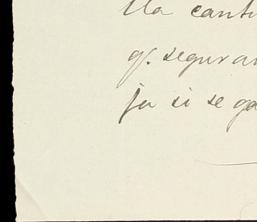 lla canti
q. seguran
ja si se ga